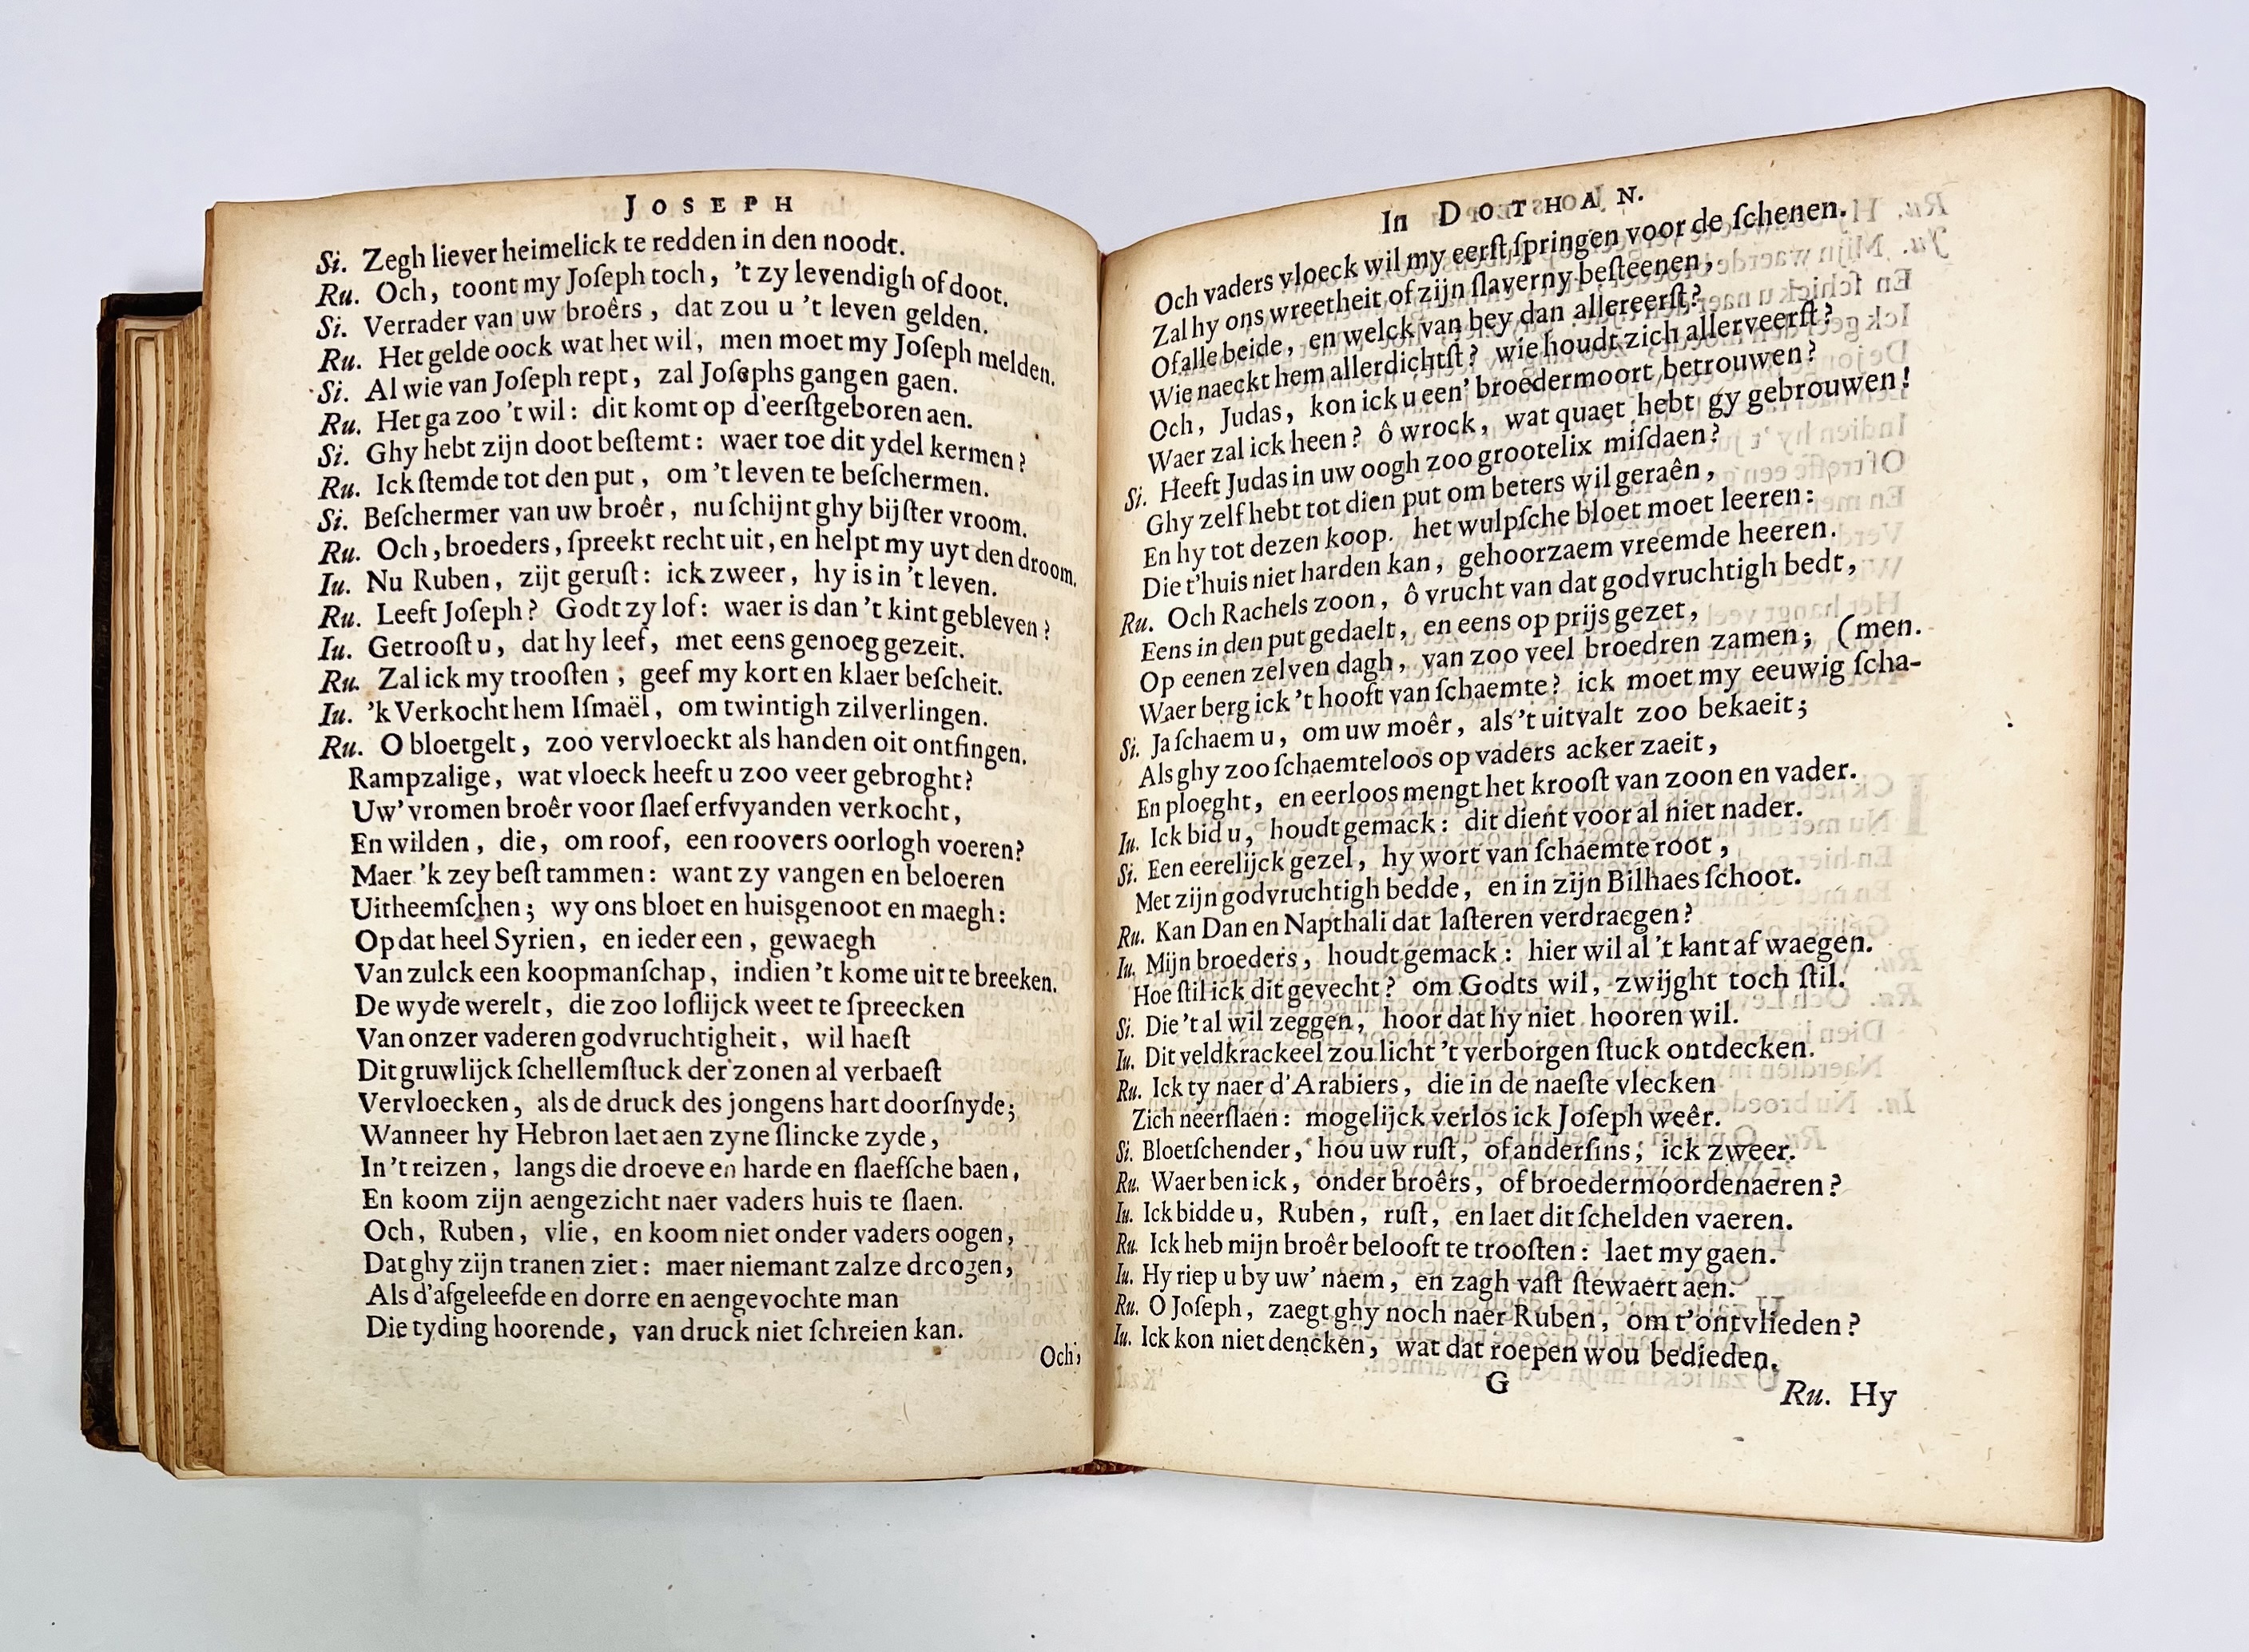 JOSEPH
Si. Zegh liever heimelick te redden in den noodt.
Ru. Och, toont my Joſeph toch, 't zy levendigh of doot.
Si. Verrader van uw broêrs, dat zou u 't leven gelden.
Ru. Het gelde oock wat het wil, men moet my Joſeph melden.
Si. Al wie van Joſeph rept, zal Joſephs gangen gaen.
Ru. Het ga zoo 't wil: dit komt op d'eerſtgeboren aen.
Si. Ghy hebt zijn doot beſtemt: waer toe dit ydel kermen?
Ru. Ick ſtemde tot den put, om 't leven te beſchermen.
Si. Beſchermer van uw broêr, nu ſchijnt ghy bijſter vroom.
Ru. Och, broeders, ſpreekt recht uit, en helpt my uyt den droom.
Iu. Nu Ruben, zijt geruſt: ick zweer, hy is in 't leven.
Ru. Leeft Joſeph? Godt zy lof: waer is dan 't kint gebleven?
Iu. Getrooſt u, dat hy leef, met eens genoeg gezeit.
Ru. Zal ick my trooſten; geef my kort en klaer beſcheit.
Iu. 'k Verkocht hem Iſmaël, om twintigh zilverlingen.
Ru. O bloetgelt, zoo vervloeckt als handen oit ontfingen.
Rampzalige, wat vloeck heeft u zoo veer gebroght?
Uw' vromen broêr voor ſlaef erfvyanden verkocht,
En wilden, die, om roof, een roovers oorlogh voeren?
Maer 'k zey beſt tammen: want zy vangen en beloeren
Uitheemſchen; wy ons bloet en huisgenoot en maegh:
Op dat heel Syrien, en ieder een, gewaegh
Van zulck een koopmanſchap, indien 't kome uit te breeken.
De wyde werelt, die zoo loflijck weet te ſpreecken
Van onzer vaderen godvruchtigheit, wil haeſt
Dit gruwlijck ſchellemſtuck der zonen al verbaeſt
Vervloecken, als de druck des jongens hart doorſnyde;
Wanneer hy Hebron laet aen zyne ſlincke zyde,
In 't reizen, langs die droeve en harde en ſlaefſche baen,
En koom zijn aengezicht naer vaders huis te ſlaen.
Och, Ruben, vlie, en koom niet onder vaders oogen,
Dat ghy zijn tranen ziet: maer niemant zal ze drcogen,
Als d'afgeleefde en dorre en aengevochte man
Die tyding hoorende, van druck niet ſchreien kan.
Och,
In DOTHAN.
Och vaders vloeck wil my eerſt ſpringen voor de ſchenen.
Zal hy ons wreetheit of zijn ſlaverny beſteenen,
Of alle beide, en welck van bey dan allereerſt?
Wie naeckt hem allerdichtſt? wie houdt zich allerveerſt?
Och, Judas, kon ick u een' broedermoort betrouwen?
Waer zal ick heen? ô wrock, wat quaet hebt gy gebrouwen!
Si. Heeft Judas in uw oogh zoo grootelix miſdaen?
Ghy zelf hebt tot dien put om beters wil geraên,
En hy tot dezen koop. het wulpſche bloet moet leeren:
Die t'huis niet harden kan, gehoorzaem vreemde heeren.
Ru. Och Rachels zoon, ô vrucht van dat godvruchtigh bedt,
Eens in den put gedaelt, en eens op prijs gezet,
Op eenen zelven dagh, van zoo veel broedren zamen; (men.
Waer berg ick 't hooft van ſchaemte? ick moet my eeuwig ſcha-
Si. Ja ſchaem u, om uw moêr, als 't uitvalt zoo bekaeit;
Als ghy zoo ſchaemteloos op vaders acker zaeit,
En ploeght, en eerloos mengt het krooſt van zoon en vader.
Iu. Ick bid u, houdt gemack: dit dient voor al niet nader.
Si. Een eerelijck gezel, hy wort van ſchaemte root,
Met zijn godvruchtigh bedde, en in zijn Bilhaes ſchoot.
Ru. Kan Dan en Napthali dat laſteren verdraegen?
Iu. Mijn broeders, houdt gemack: hier wil al 't lant af waegen.
Hoe ſtil ick dit gevecht? om Godts wil, zwijght toch ſtil.
Si. Die 't al wil zeggen, hoor dat hy niet hooren wil.
Iu. Dit veldkrackeel zou licht 't verborgen ſtuck ontdecken.
Ru. Ick ty naer d'Arabiers, die in de naeſte vlecken
Zich neerſlaen: mogelijck verlos ick Joſeph weêr.
Si. Bloetſchender, hou uw ruſt, of anderſins; ick zweer.
Ru. Waer ben ick, onder broêrs, of broedermoordenaeren?
Iu. Ick bidde u, Ruben, ruſt, en laet dit ſchelden vaeren.
Ru. Ick heb mijn broêr belooft te trooſten: laet my gaen.
Iu. Hy riep u by uw' naem, en zagh vaſt ſtewaert aen.
Ru. O Joſeph, zaegt ghy noch naer Ruben, om t'ontvlieden?
Iu. Ick kon niet dencken, wat dat roepen wou bedieden.
G
Ru. Hy